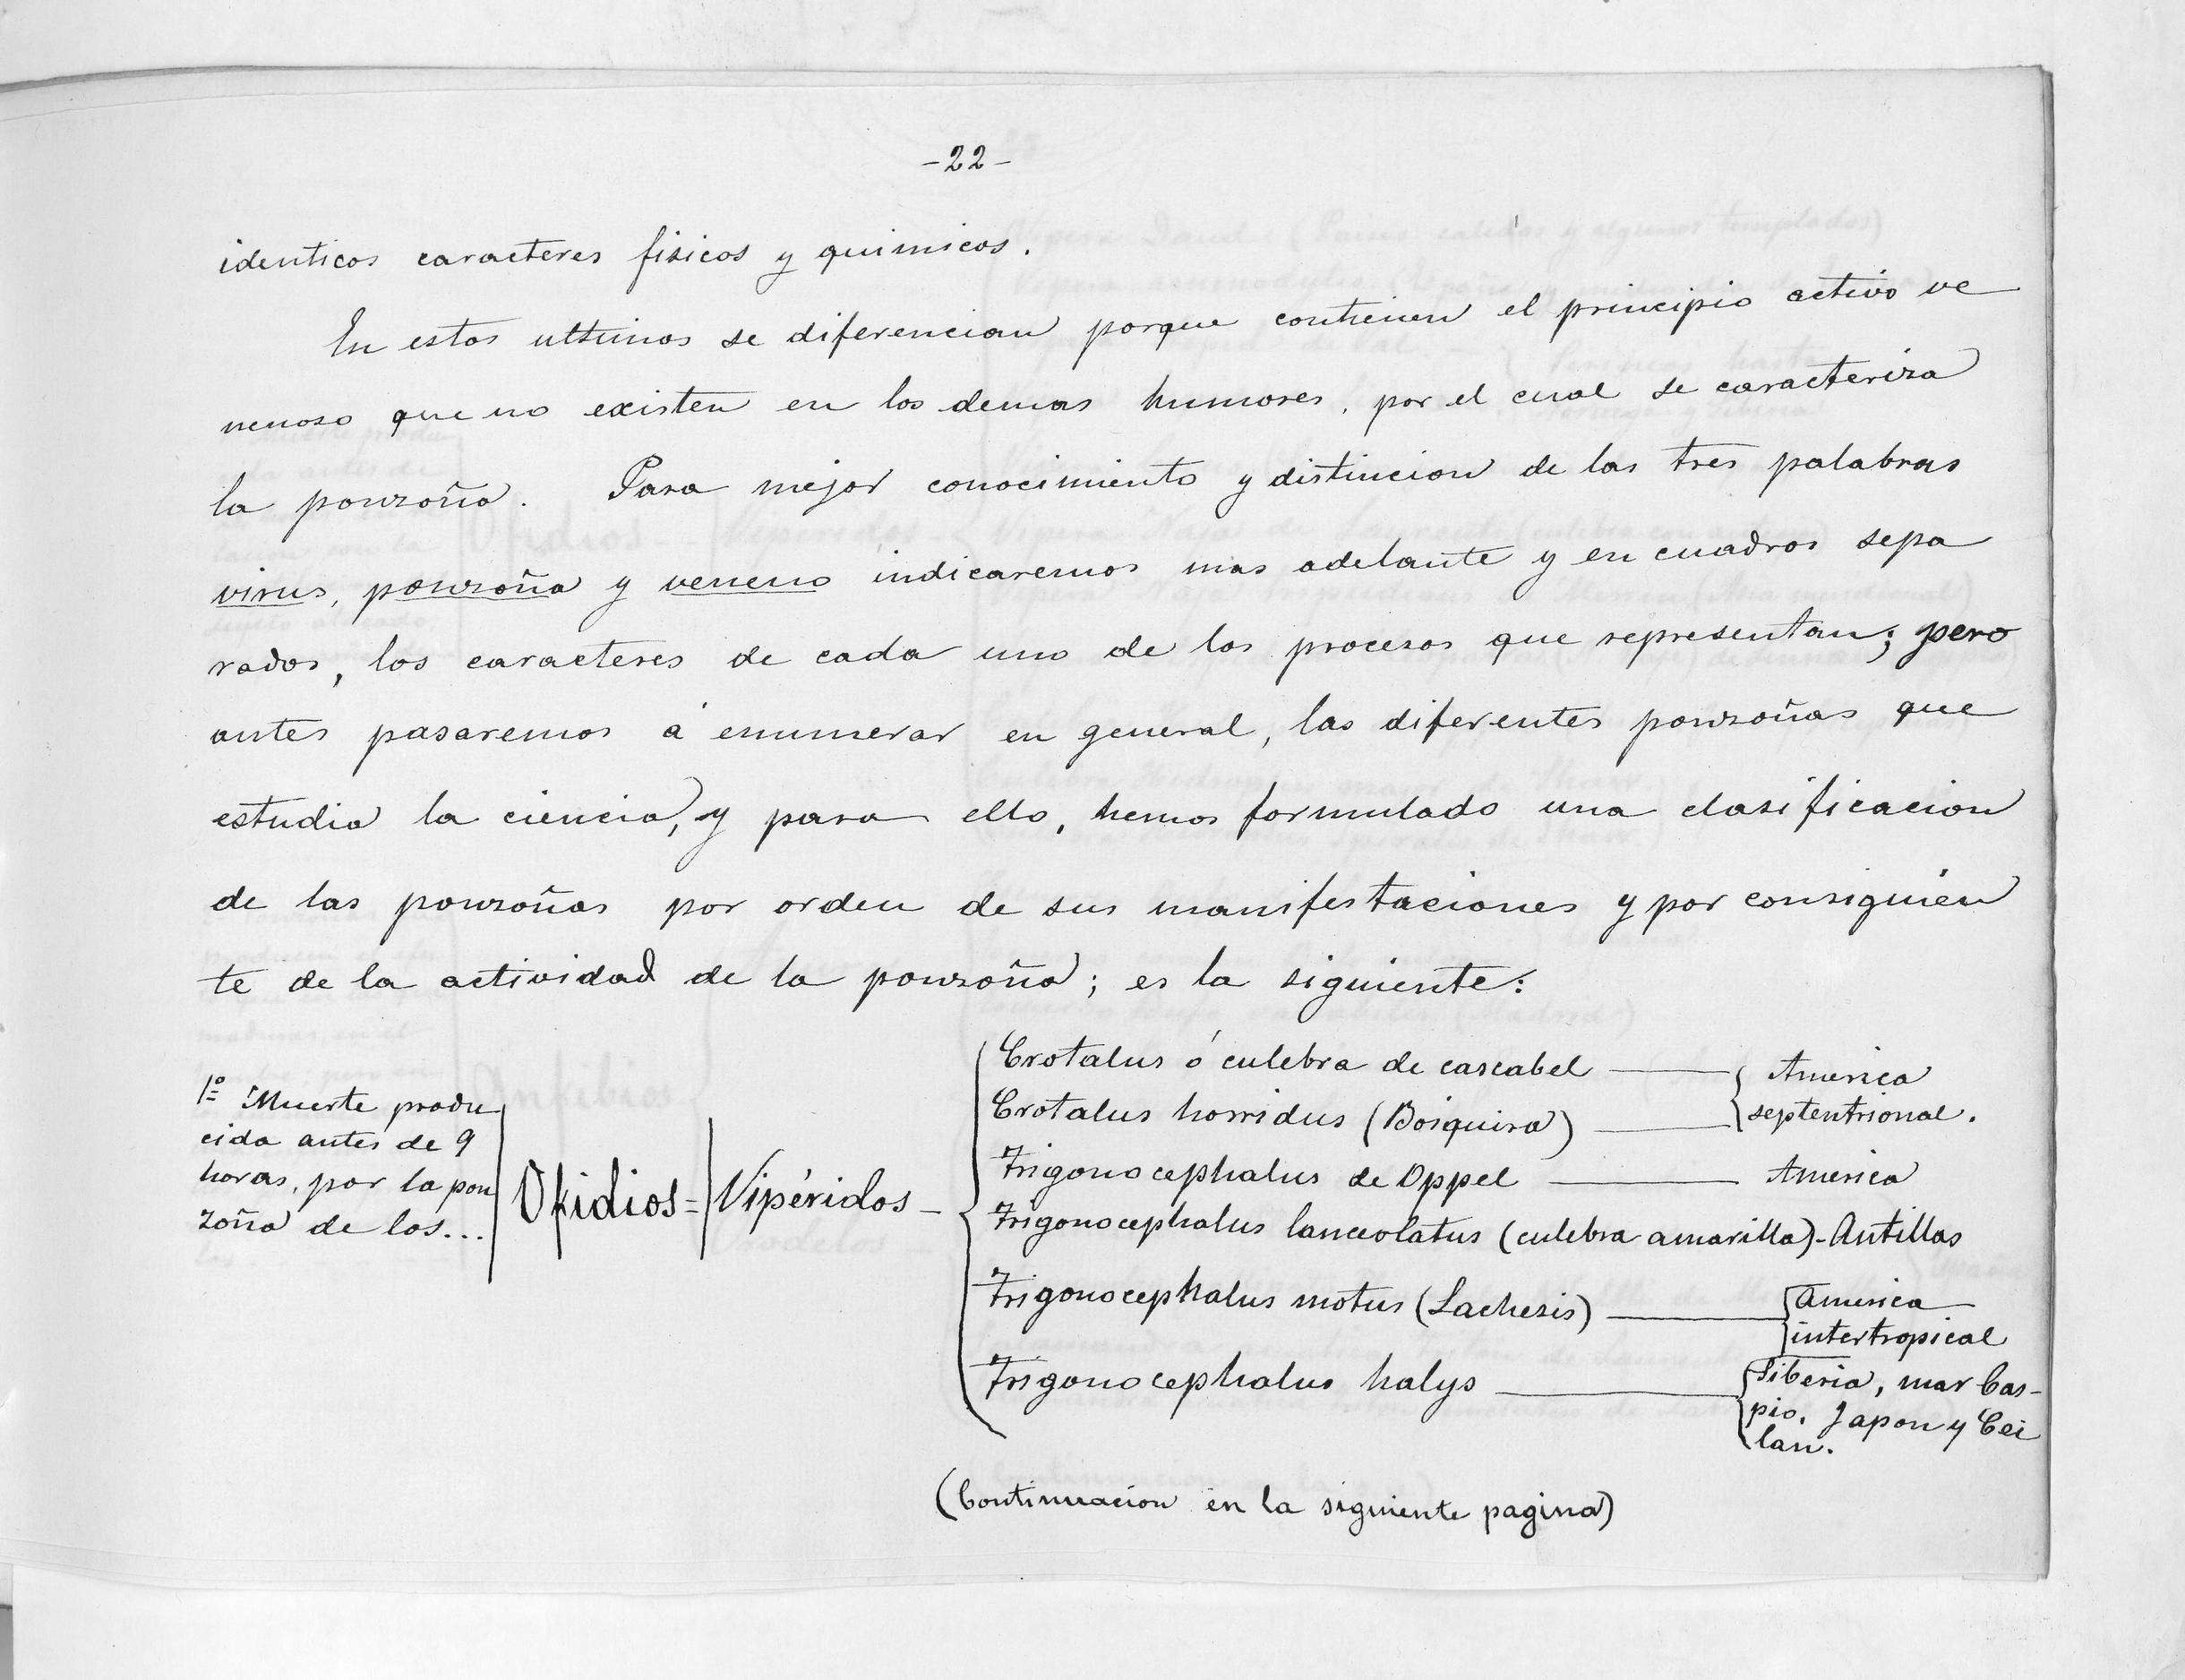 -22-
identicos caracteres fisicos y quimicos.
En estos ultimos se diferencian porque contienen el principio activo ve
nenoso que no existen en los demas humores, por el cual se caracteriza
la ponzoña. Para mejor conocimiento y distincion de las tres palabras
virus, ponzoña y veneno indicaremos mas adelante y en cuadros sepa
rados, los caracteres de cada uno de los procesos que representan; pero
antes pasaremos á enumerar en general, las diferentes ponzoñas que
estudia la ciencia, y para ello, hemos formulado una clasificacion
de las ponzoñas por orden de sus manifestaciones y por consiguien
te de la actividad de la ponzoña; es la siguiente:
1º Muerte produ
cida antes de 9
horas, por la pon
zoña de los...
Ofidios =
Vipéridos -
Crotalus ó culebra de cascabel
Crotalus horridus (Boiquira)
America
septentrional.
Trigonocephalus de Oppel America
Trigonocephalus lanceolatus (culebra amarilla)-Antillas
Trigonocephalus motus (Lachesis) America
intertropical
Trigonocephalus halys Siberia, mar Cas-
pio, Japon y Cei
lan.
(Continuacion en la siguiente pagina)